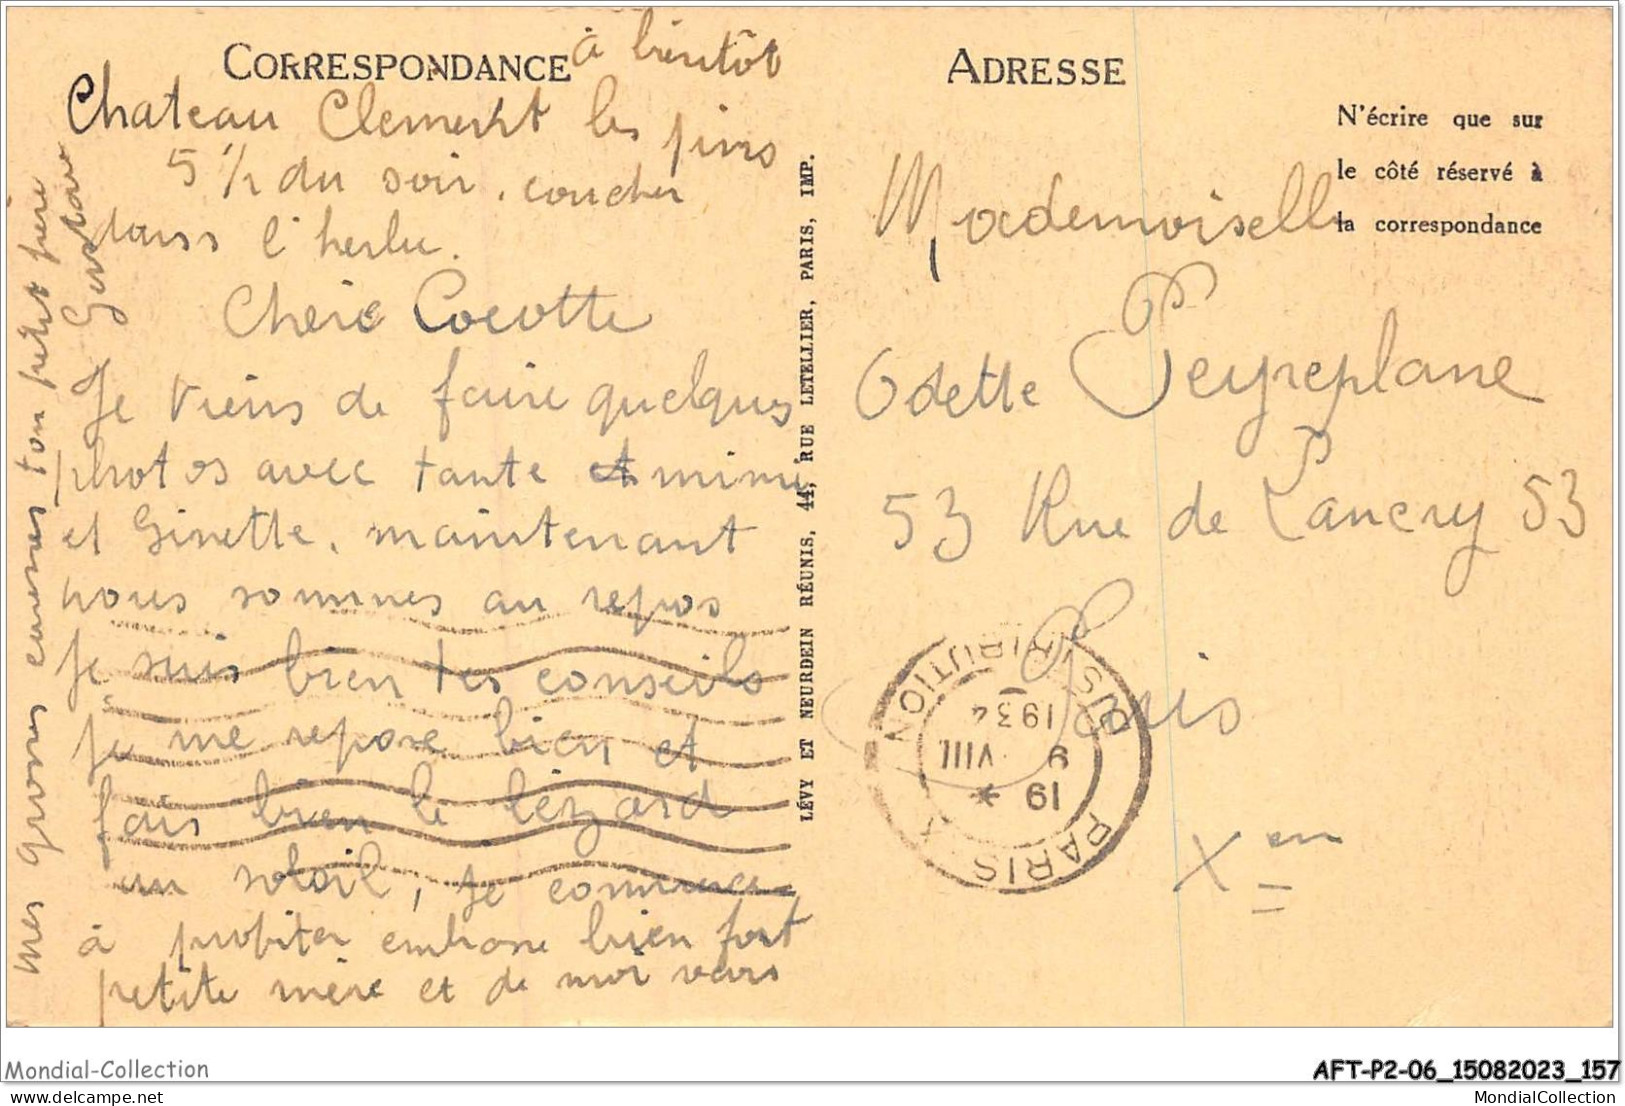 CORRESPONDANCE
à bientôt
Chateau Clement les pins
5 1/2 du soir. coucher
dans l'herbe.
Cherie Cocotte
Je viens de faire quelques
photos avec tante et mimi
et Ginette, maintenant
nous sommes au repos
Je suis bien tes conseils
Je me repose bien et
fais bien le lézard
au soleil, je commence
à profiter embrasse bien fort
petite mère et de moi
mes grosses caresses ton petit père
Gustave
LÉVY ET NEURDEIN RÉUNIS, 44, RUE LETELLIER, PARIS, IMP.
ADRESSE
N'écrire que sur
le côté réservé à
la correspondance
Mademoiselle
Odette Peyreplane
53 Rue de Lancry 53
Paris
Xen
PARIS X DISTRIBUTION
19 *
9 VIII
1934
Mondial-Collection
AFT-P2-06_15082023_157
www.delcampe.net
MondialCollection